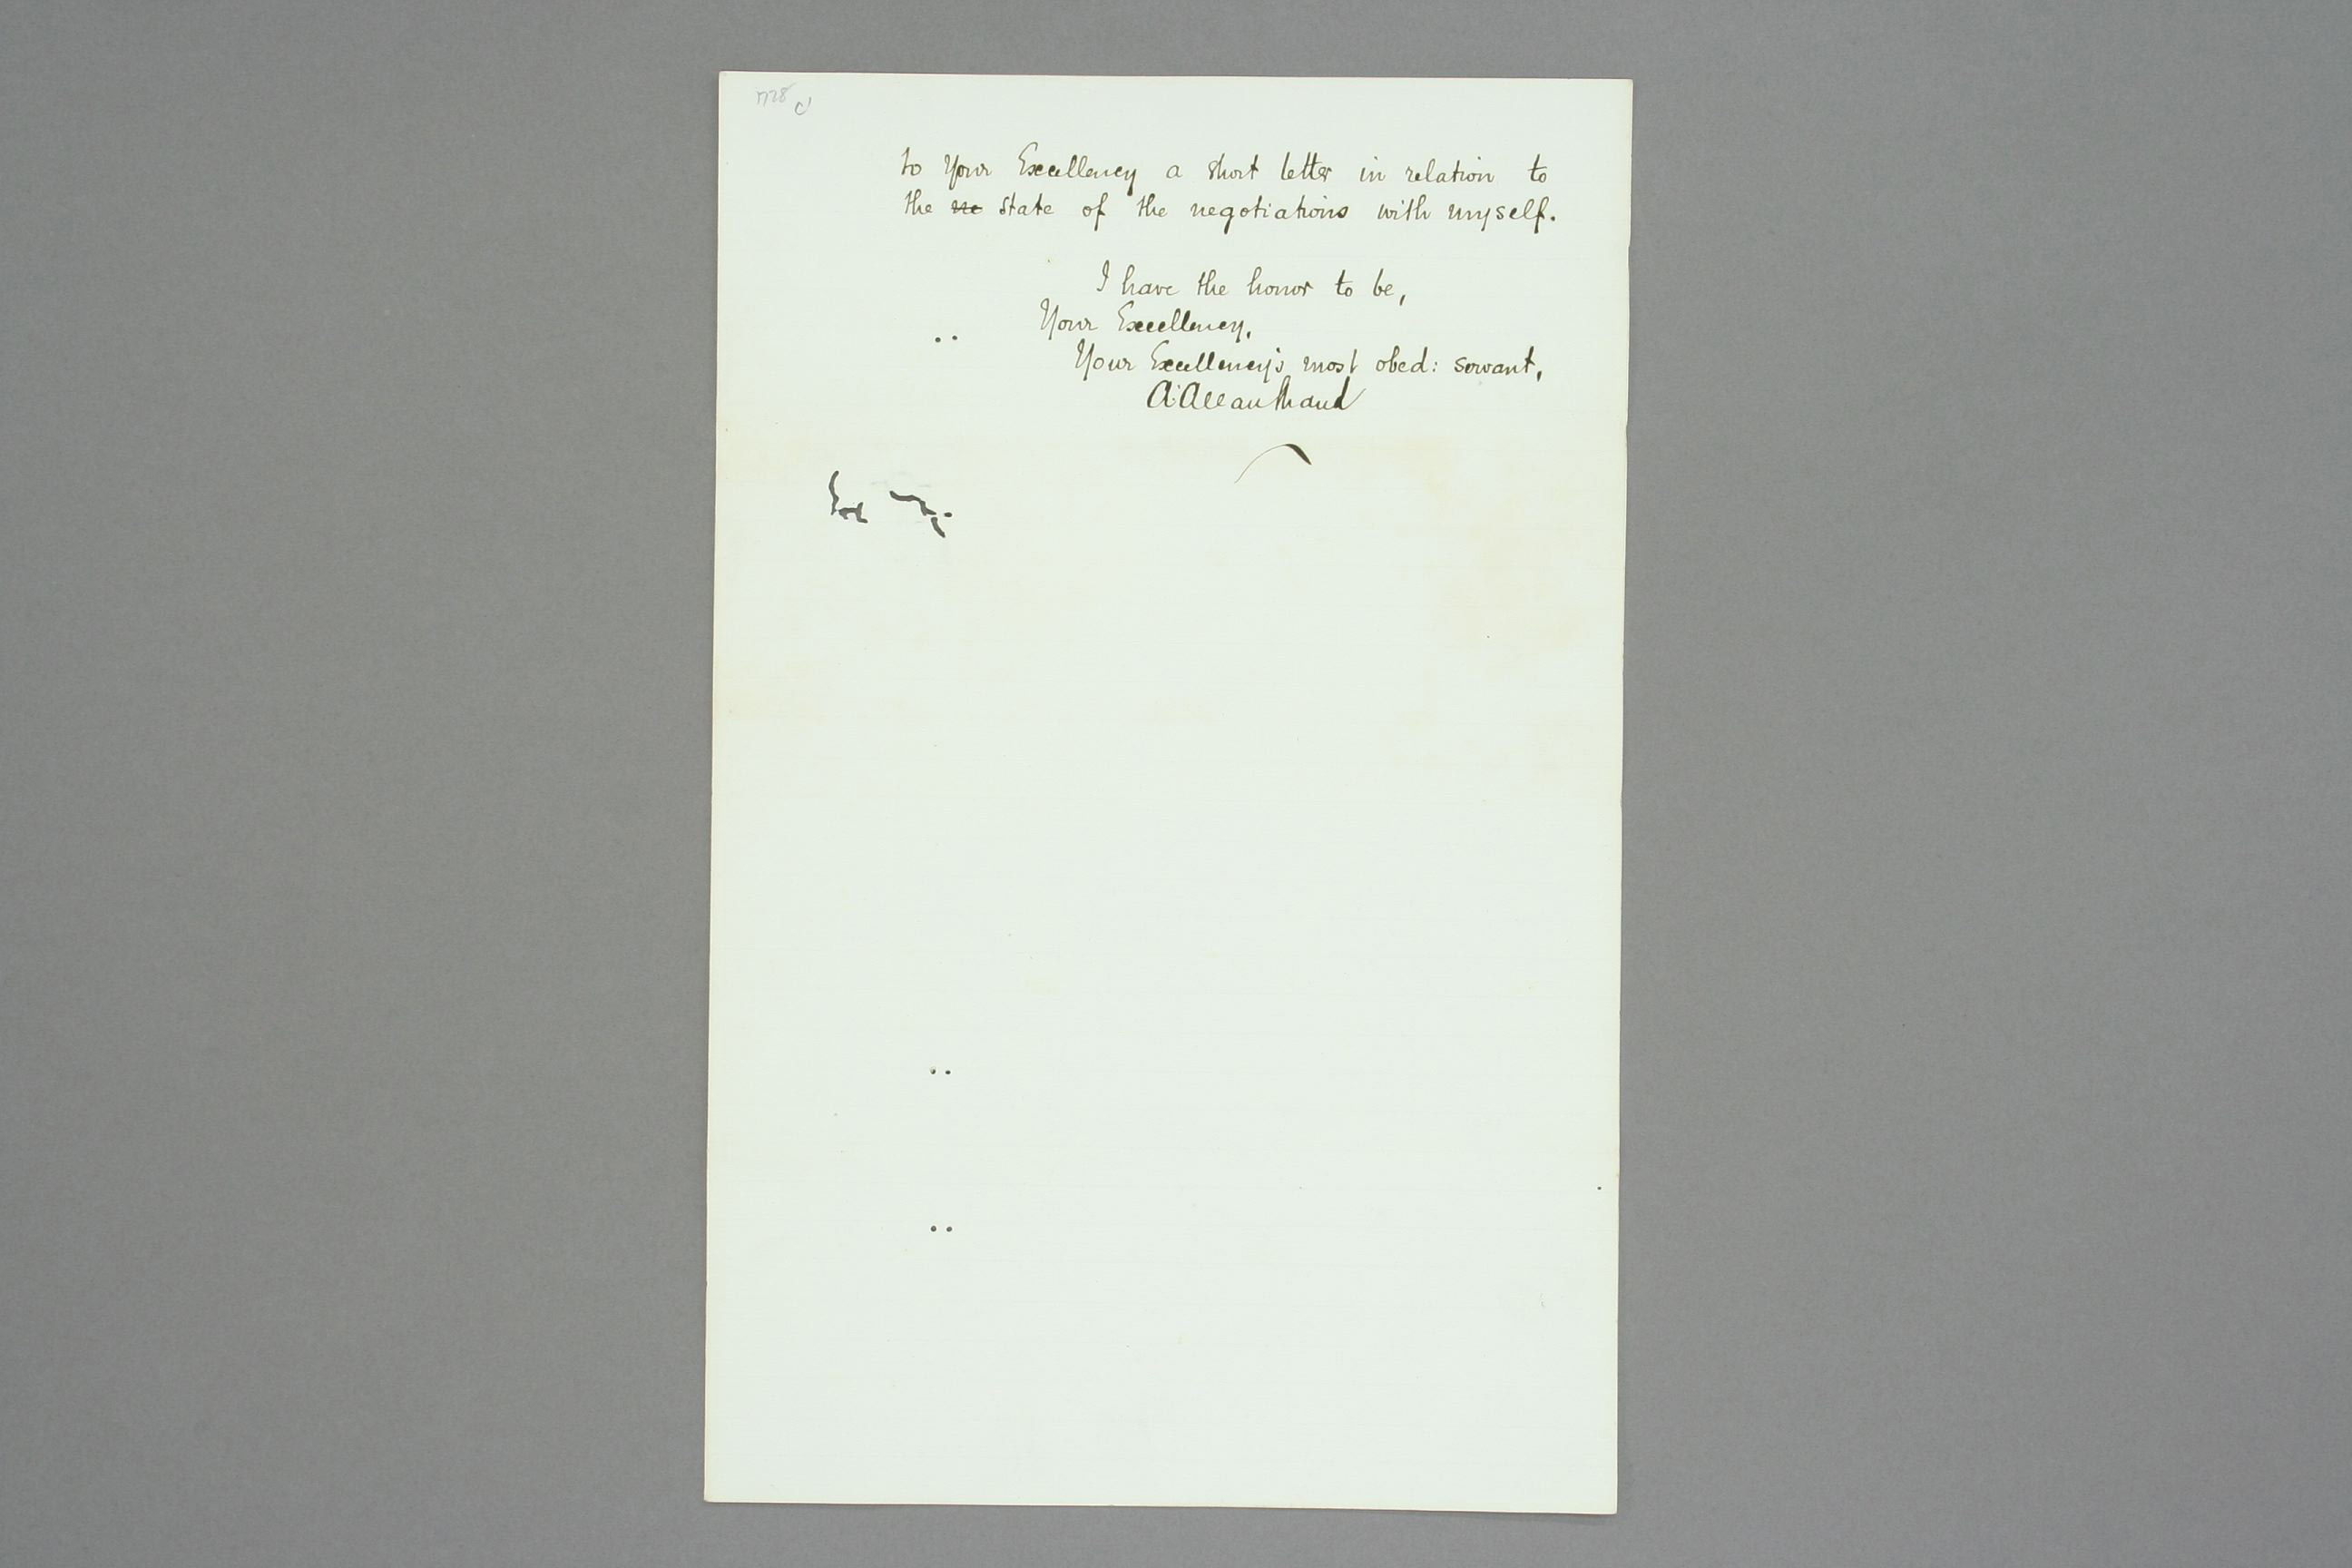 1728 c
to Your Excellency a short letter in relation to
the ne state of the negotiations with myself.
I have the honor to be,
Your Excellency,
Your Excellency's most obed: servant,